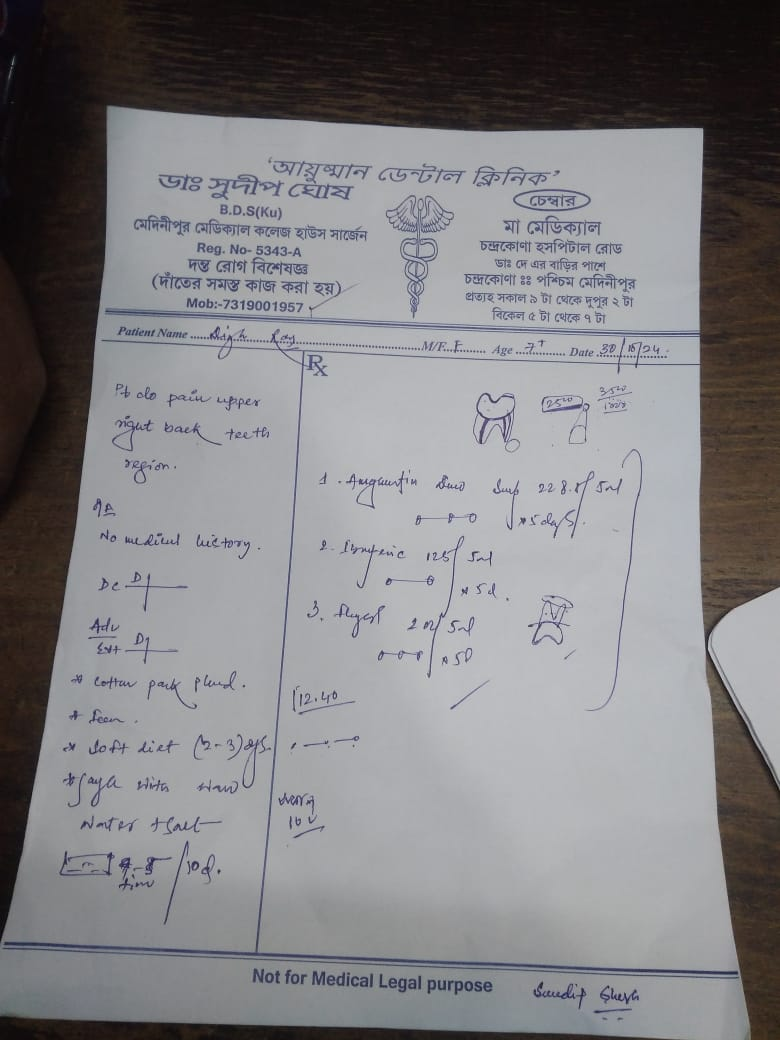 'আয়ুষ্মান ডেন্টাল ক্লিনিক'
ডাঃ সুদীপ ঘোষ
B.D.S(Ku)
মেদিনীপুর মেডিক্যাল কলেজ হাউস সার্জেন
Reg. No- 5343-A
দন্ত রোগ বিশেষজ্ঞ
(দাঁতের সমস্ত কাজ করা হয়)
Mob:-7319001957
চেম্বার
মা মেডিক্যাল
চন্দ্রকোণা হসপিটাল রোড
ডাঃ দে এর বাড়ির পাশে
চন্দ্রকোণা ঃঃ পশ্চিম মেদিনীপুর
প্রত্যহ সকাল ৯ টা থেকে দুপুর ২ টা
বিকেল ৫ টা থেকে ৭ টা
Patient Name Roy M/F. F Age 7+ Date 30/10/24
Rx
Pt c/o pain upper
right back teeth
region.
No medical history.
DC D
Adv
Ext D
* cotton pack
* soft diet (2-3) dys.
with warm
water + salt
/10 d.
2500
3500
1. Duo Susp 228.5/5ml
x 5 days.
2. 125/5ml
x 5d.
3. Flagyl 200/5ml
x 5d
12.40
Not for Medical Legal purpose
Sudip Ghosh